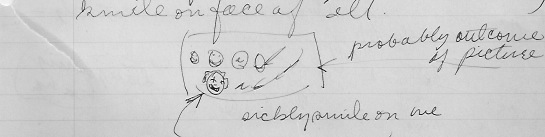 smile on face of 'ell.
probably outcome
of picture
sickly smile on me